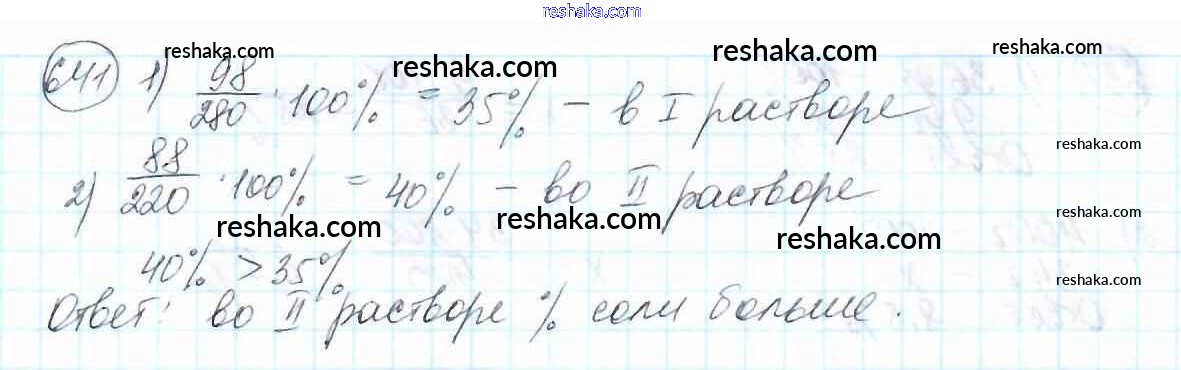 reshaka.com
641 1) 98/280 · 100% = 35% – в I растворе
reshaka.com
reshaka.com
reshaka.com
reshaka.com
2) 88/220 · 100% = 40% – во II растворе
reshaka.com
reshaka.com
reshaka.com
reshaka.com
reshaka.com
40% > 35%
reshaka.com
Ответ: во II растворе % соли больше.